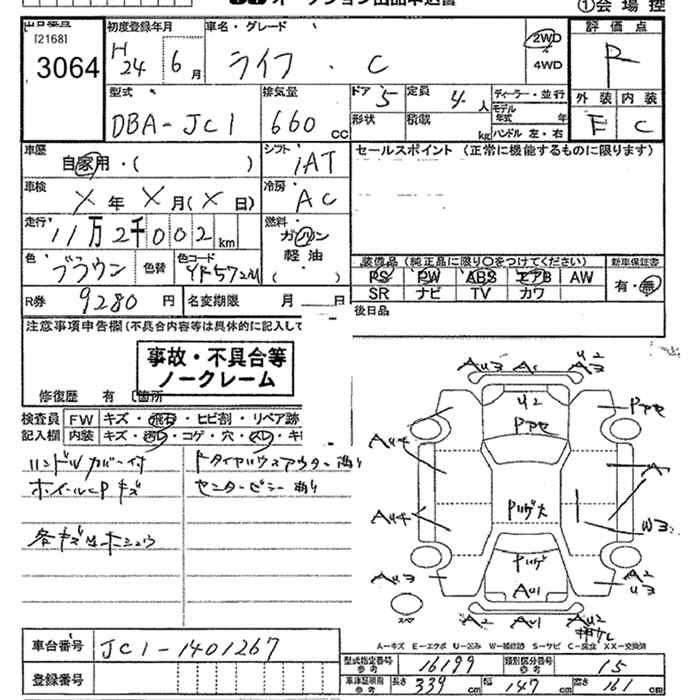 オークション出品申込書
①会場控
出品番号
[2168]
3064
初度登録年月
H
24 6月
車名・グレード
ライフ . C
2WD
4WD
評価点
R
外装 内装
E C
型式
DBA-JC1
排気量
660 cc
ドア 5
定員 4人
形状
積載 kg
ディーラー・並行
モデル年式 年
ハンドル 左・右
車歴
自家用・( )
シフト
IAT
セールスポイント (正常に機能するものに限ります)
車検
X年 X月(X日)
冷房
AC
走行
11万2千002km
燃料
ガソリン
軽油
( )
色
ブラウン
色替
色コード
YR572M
装備品(純正品に限り○をつけてください)
新車保証書
PS PW ABS エアB AW
SR ナビ TV カワ
有・無
R券 9280円
名変期限 月 日
後日品
注意事項申告欄(不具合内容等は具体的に記入して
事故・不具合等
ノークレーム
修復歴 有 〔箇所
検査員 FW キズ・飛石・ヒビ割・リペア跡
記入欄 内装 キズ・汚れ・コゲ・穴・スレ・キ
ハンドルカバー付
ホイールCPキズ
各キズ凹ホシュウ
センターピラー
AU3 A1 U2
A3
U2
Pアセ
Pアセ
AU4
A
AU4
W3
AU3
AU1
A2
U3
スペア
A2 AU1 AU2
A-キズ E-エクボ U-凹み W-補修跡 S-サビ C-腐食 XX-交換済
車台番号 JC1-1401267
登録番号
型式指定番号 参考 16199
類別区分番号 参考 15
車庫証明用 参考 長さ 339cm 幅 147cm 高さ 161cm